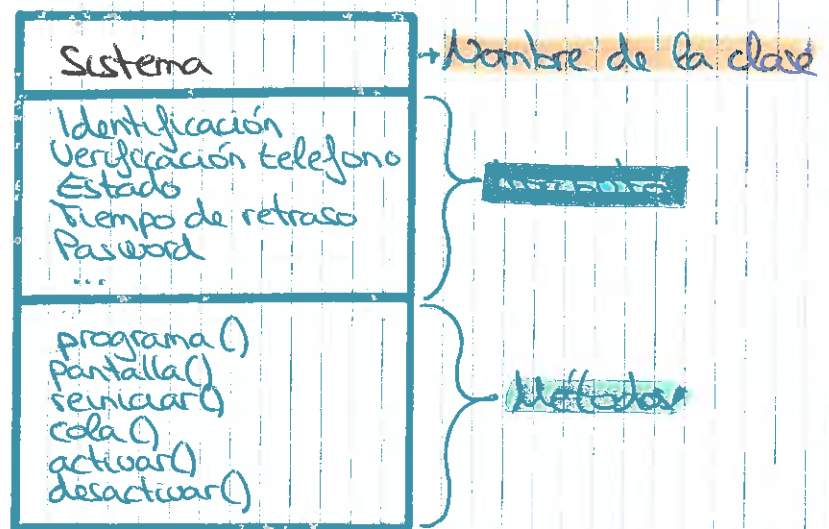 Sistema
Nombre de la clase
Identificación
Verificación telefono
Estado
Tiempo de retraso
Pasword
...
programa()
pantalla()
reiniciar()
cola()
activar()
desactivar()
Métodos